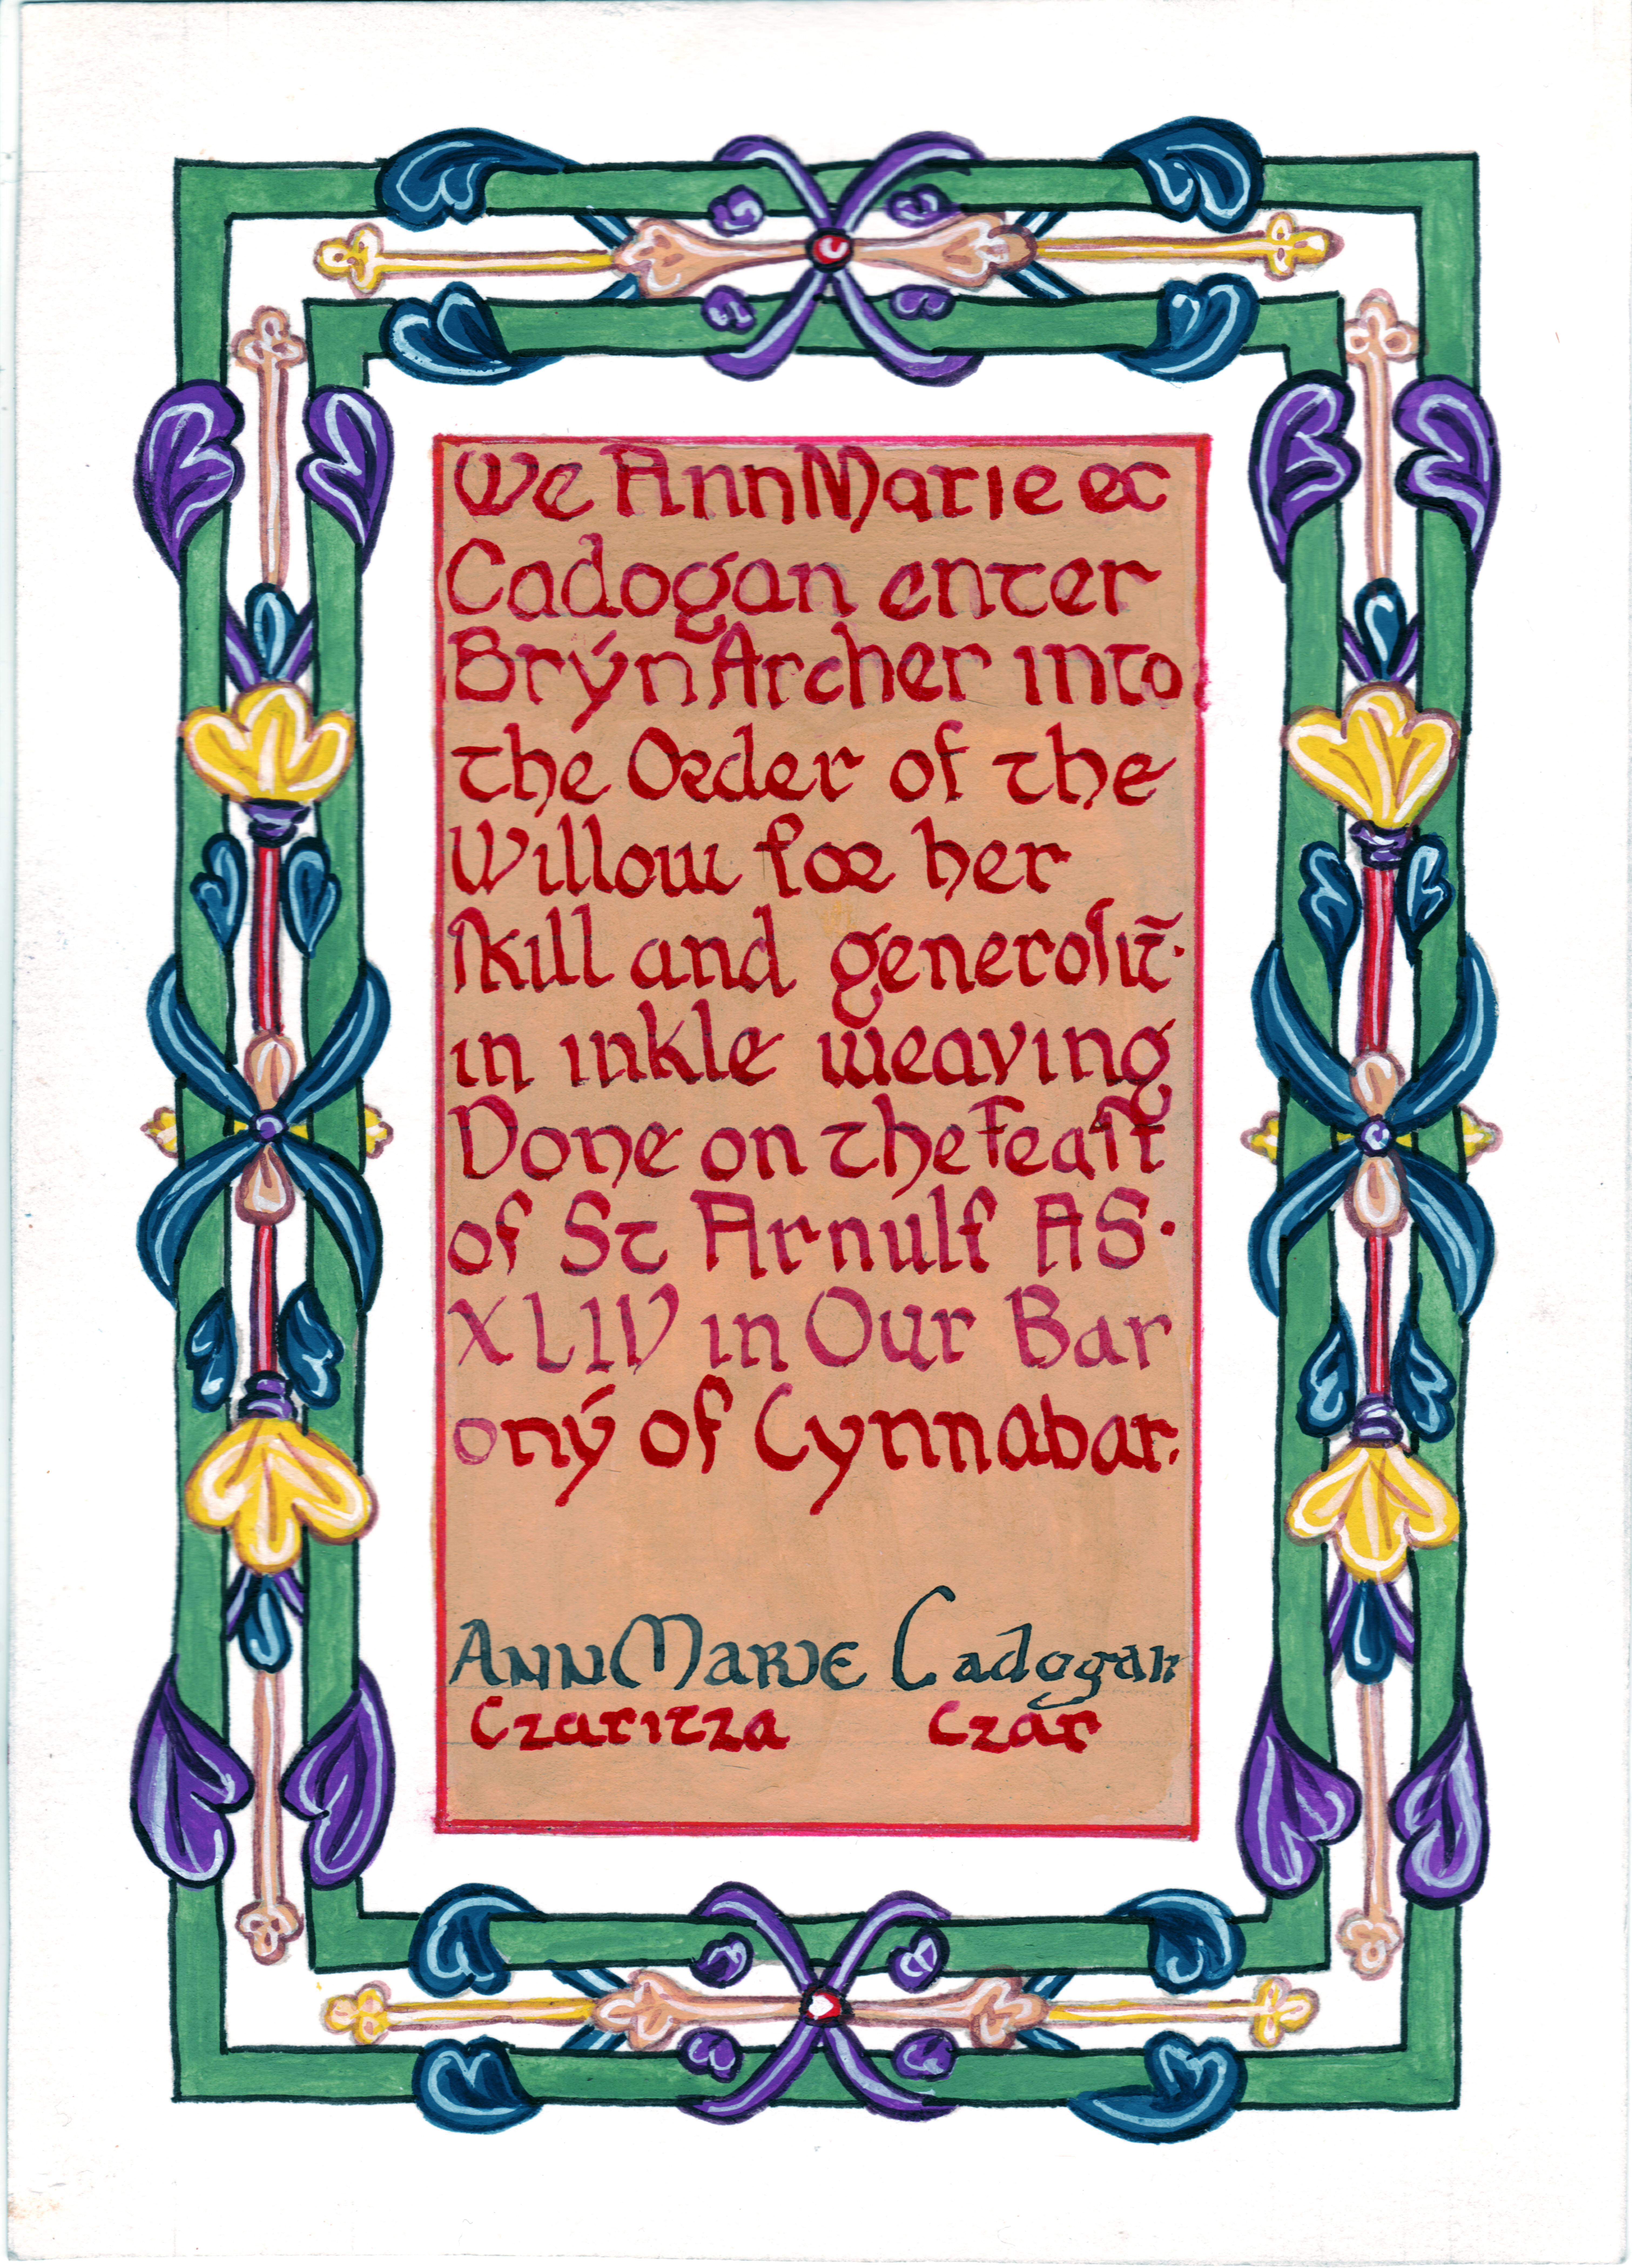 We AnnMarie et
Cadogan enter
Brẏn Archer into
the Order of the
Willow for her
ſkill and generoſit̄·
in inkle weaving
Done on the Feaſt
of St Arnulf AS·
XLIV in Our Bar
onẏ of Cynnabar.
AnnMarie Cadogan
Czaritza Czar